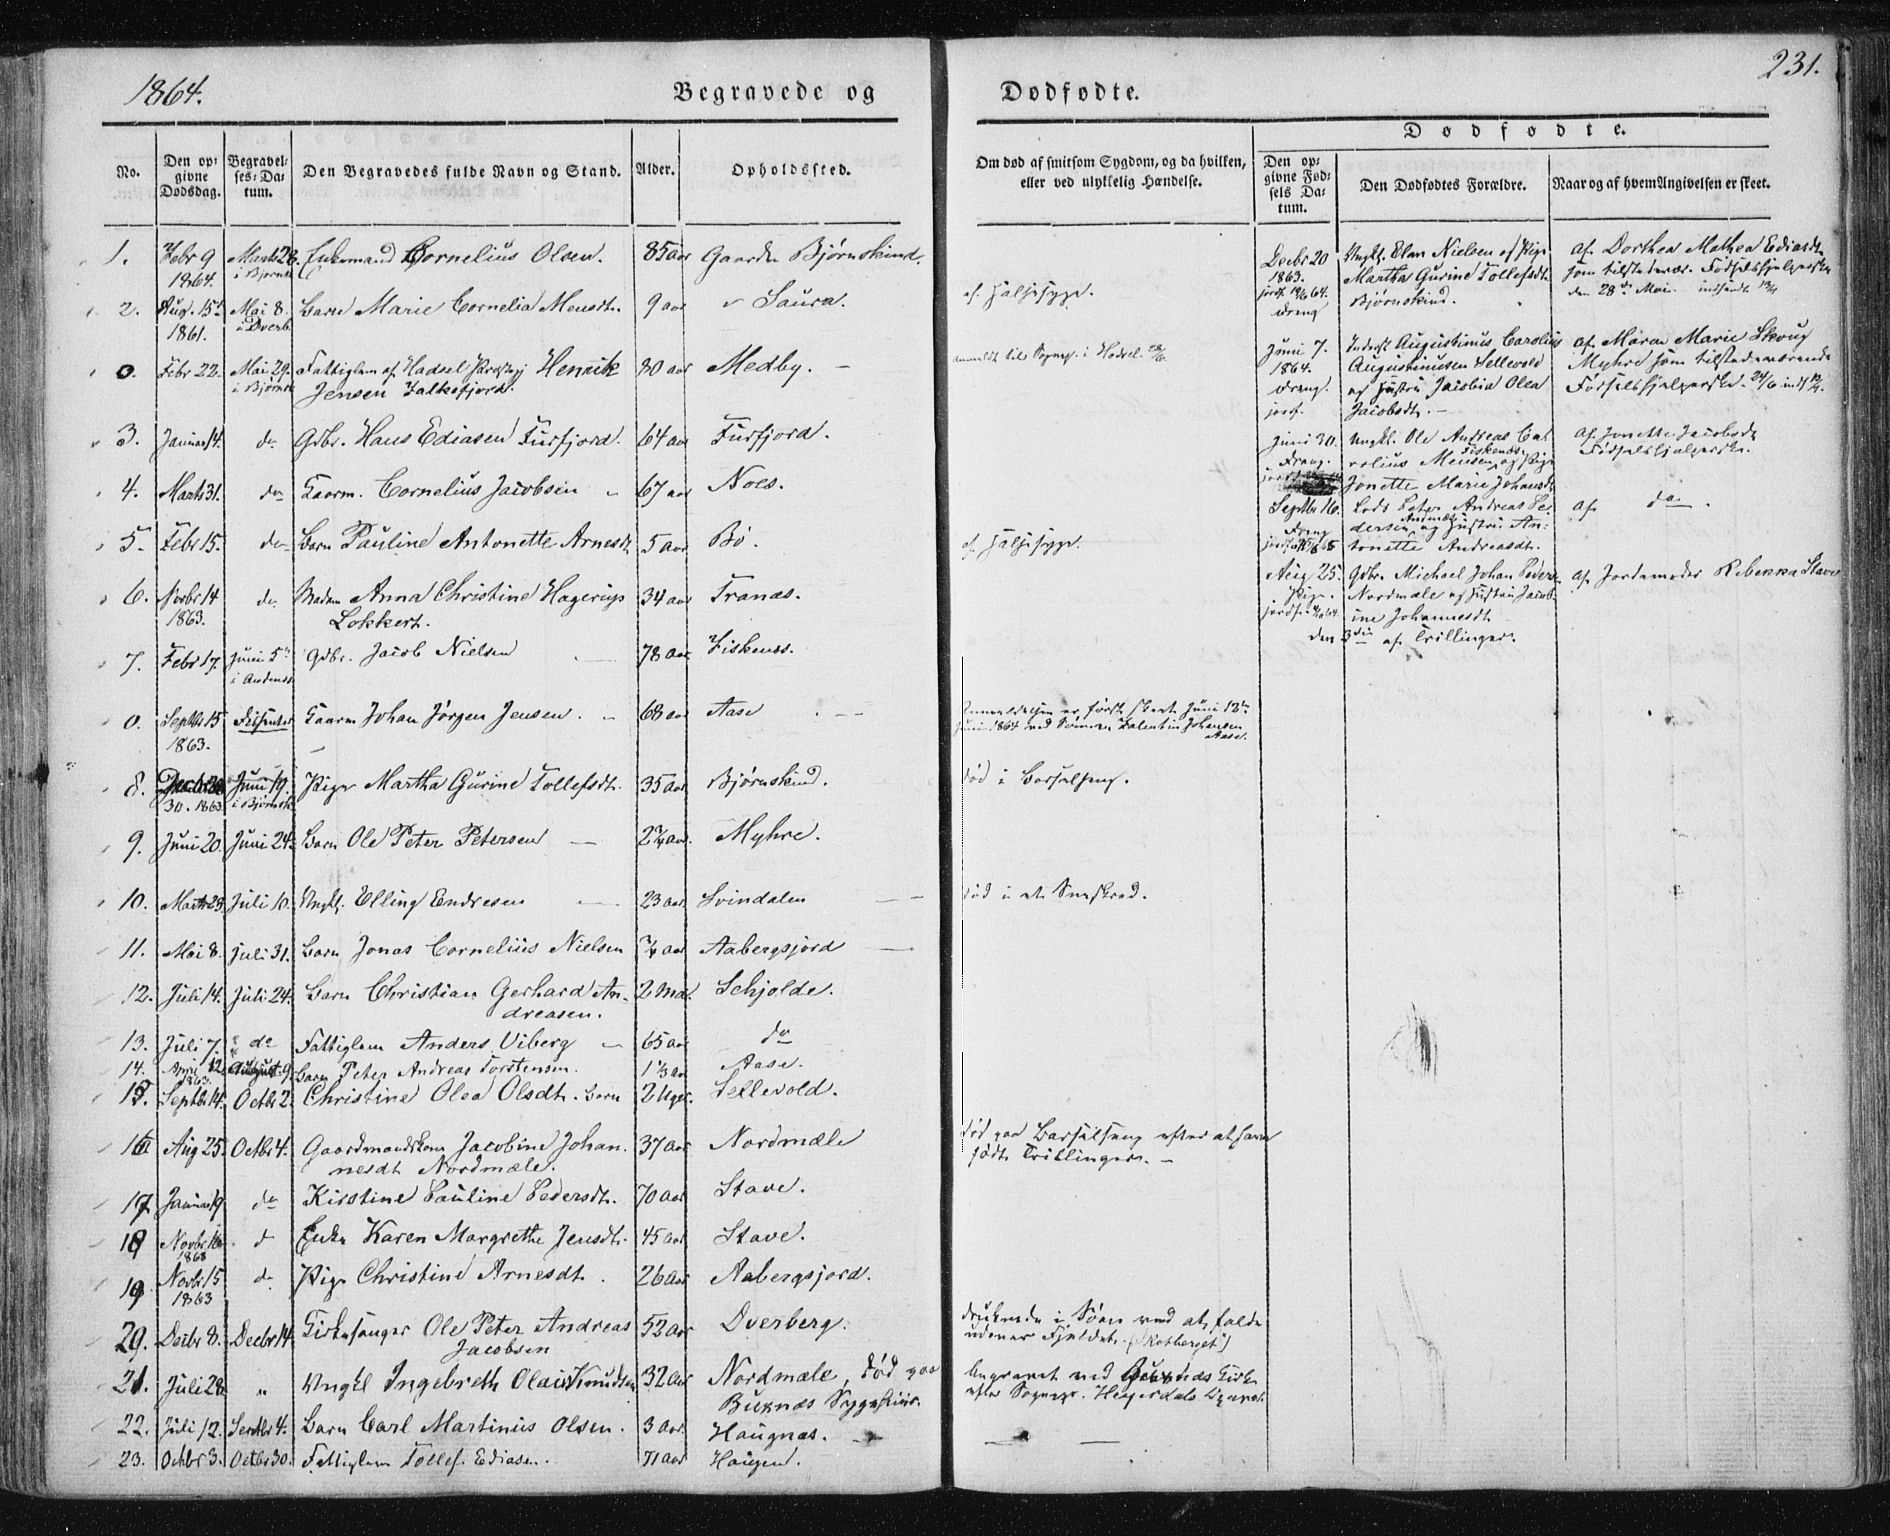 1864.
Begravede og
No.
Den opgivne Dødsdag.
Begravelses-Datum.
Den Begravedes fulde Navn og Stand.
Alder.
Opholdssted.
1. Febr 9 1864. Marts 28. i Bjørnsk Enkemand Cornelius Olsen. 85 aar Gaarden Bjørnskind.
2. Aug. 15de 1861. Mai 8. i Dverb. Barn Marie Cornelia Mensdt. 9 aar Saura.
0. Febr 22. Mai 29. i Bjørnsk Fattiglem af Hadsel Henrik
Jensen Falkefjord. 80 aar Medby.
3. Januar 14. do Gdbr. Hans Ediasen Furfjord. 64 aar Furfjord.
4. Marts 31. do Gaarm. Cornelius Jacobsen 67 aar Noes.
5. Febr 15. do Barn Pauline Antonette Arnesdt. 5 aar Bø.
6. Novbr 14 1863. do Madam Anna Christine Hagerup
Lokkert. 34 aar Tranæs.
7. Febr 17. Juni 5te i Andenes Gdbr. Jacob Nielsen 78 aar Fiskenæs.
0. Septbr 15 1863. Gaarm Johan Jørgen Jensen. 68 aar Aase
8. 30. 1863. Juni 19. i Bjørnsk Pige Martha Gurine Tollefsdt. 35 aar Bjørnskind.
9. Juni 20. Juni 24. Barn Ole Peter Petersen aar. Myhre.
10. Marts 23. Juli 10. Ungk. Elling Endresen 23 aar. Svindalen
11. Mai 8. Juli 31. Barn Jonas Cornelius Nielsen aar Aabergsjord
12. Juli 14. Juli 24. Barn Christian Gerhard An-
dreasen. 2 Md. Schjolde.
13. Juli 7. do Fattiglem Anders Viberg 65 aar do
14. April 12 1863. August 9. Barn Peter Andreas Torstensen. 1⅓ aar Aase.
15. Septbr 14. Octbr 2. Christine Olea Olsdt. Barn 2 Uger. Sellevold.
16 Aug 25. Octbr 4. Gaardmandskone Jacobine Johan-
nesdt Nordmæle. 37 aar Nordmæle
17. Januar 19 do Kirstine Pauline Pedersdt. 70 aar Stave.
18 Novbr 16 1863 d Enke Karen Margrethe Jensdt. 45 aar Stave.
19 Novbr 15 1863 do Pige Christine Arnesdt. 26 aar Aabergsjord.
20. Decbr 8. Decbr 14. Kirkesanger Ole Peter Andreas
Jacobsen 52 aar Dverberg.
21. Juli 28. „ Ungkl Ingebreth Olaus Knudsen 32 aar Nordmæle, død paa
Buknæs Sygehuus.
22. Juli 12. Septbr 4. Barn Carl Martinus Olsen. 3 aar. Haugnæs.
23. Octbr 3. Octbr 30. Fattiglem Tollef Ediasen. 71 aar Haugen.
231.
Dødfødte.
Om død af smitsom Sygdom, og da hvilken, eller ved ulykkelig Hændelse.
Dødfødte.
Den opgivne Fødsels Datum.
Den Dødfødtes Forældre.
Naar og af hvem Angivelsen er skeet.
af Halssyge.
anmeldt til Sognepr. i Hadsel
af Halssyge.
Anmeldelsen er først skeet Juni 12te
Juni 1864 ved Sønnen Valentin Johansen
Aase.
død i Barselseng.
død i et Sneskred.
død paa Barselseng efter at have
født Trillinger.
druknede i Søen ved at falde
udenor Fjeldet
begravet ved Buksnæs Kirke
efter Sognepr. Heyerdahls Opgivet.
Decbr 20 1863. Dreng
Ungk. Elen Nielsen og Pige
Martha Gurine Tollefsdt.
Bjørnskind.
af Dorthea Mathea Ediasdt.
som tilstedevær. Fødselshjelperske
den 28de Mai. indsendt
Juni 7. 1864. Dreng. jordf.
Inderst Augustinus Carolius
Augustinusen Sellevold
og Hustru Jacobia Olea
Jacobsdt.
af Maren Marie Skoug
Myhre som tilstedeværende
Fødselshjelperske. 24/6
Juni 30. Dreng.
Ungk. Ole Andreas Ca-
rolius Mensen Fiskenæs og Pige
Jonette Marie Johansdt
af Jonette Jacobsdt
Fødselshjelperske.
Septbr 16. Dreng
Lods Peter Andreas Pe-
dersen og Hustru An-
tonette Andreasdt.
af do.
Aug 25. Pige. jordf.
Gdbr. Michael Johan Peders.
Nordmæle og Hustru Jacob-
ine Johannesdt
den 3die af Trillinger.
af Jordemoder Rebekka Stave